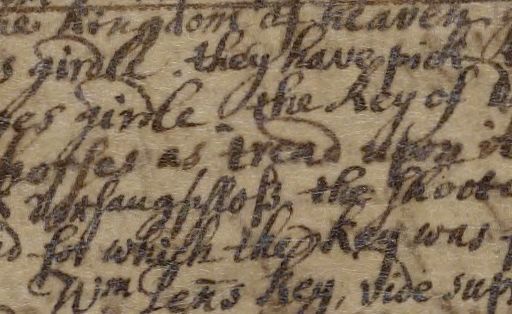 kingdom of heaven
girdle. they have pickt
girdle the key of
horses as tread upon it
the shoote
for which the key was
Wm Penñs key, vide sup